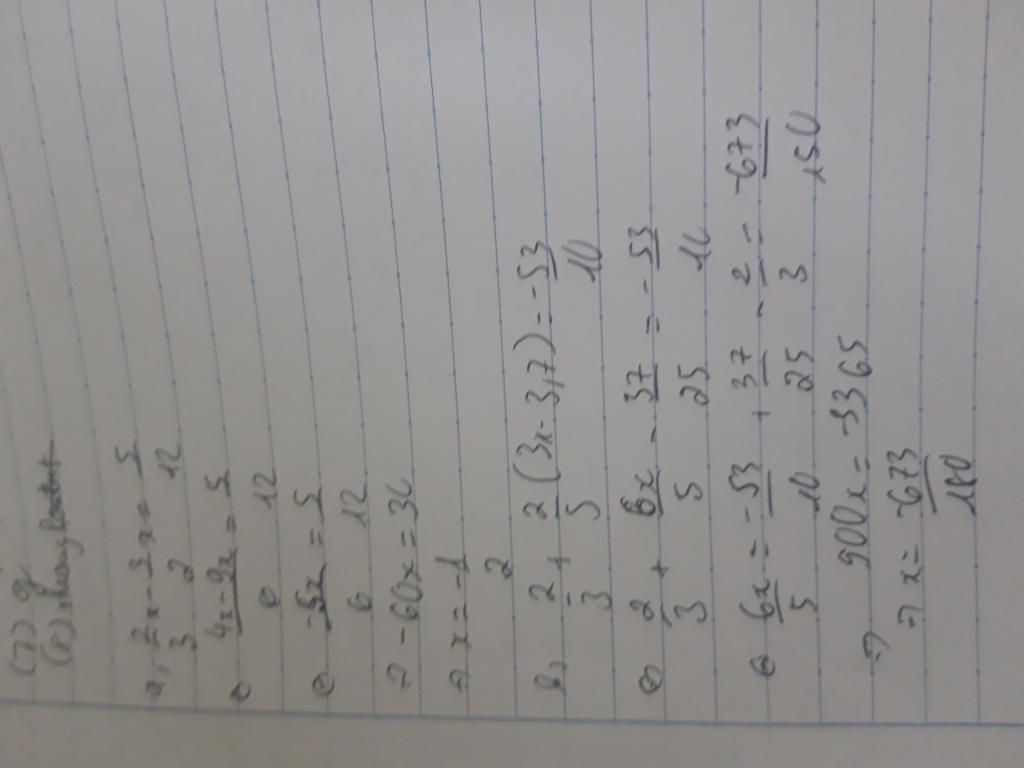 (7) 9
a, 2/3 x - 3/2 x = 5/12
⇔ (4x - 9x)/6 = 5/12
⇔ -5x/6 = 5/12
⇒ -60x = 30
⇒ x = -1/2
b, 2/3 + 2/5 (3x - 3,7) = -53/10
⇔ 2/3 + 6x/5 - 37/25 = -53/10
⇔ 6x/5 = -53/10 + 37/25 - 2/3 = -673/150
⇒ 900x = -3365
⇒ x = -673/180